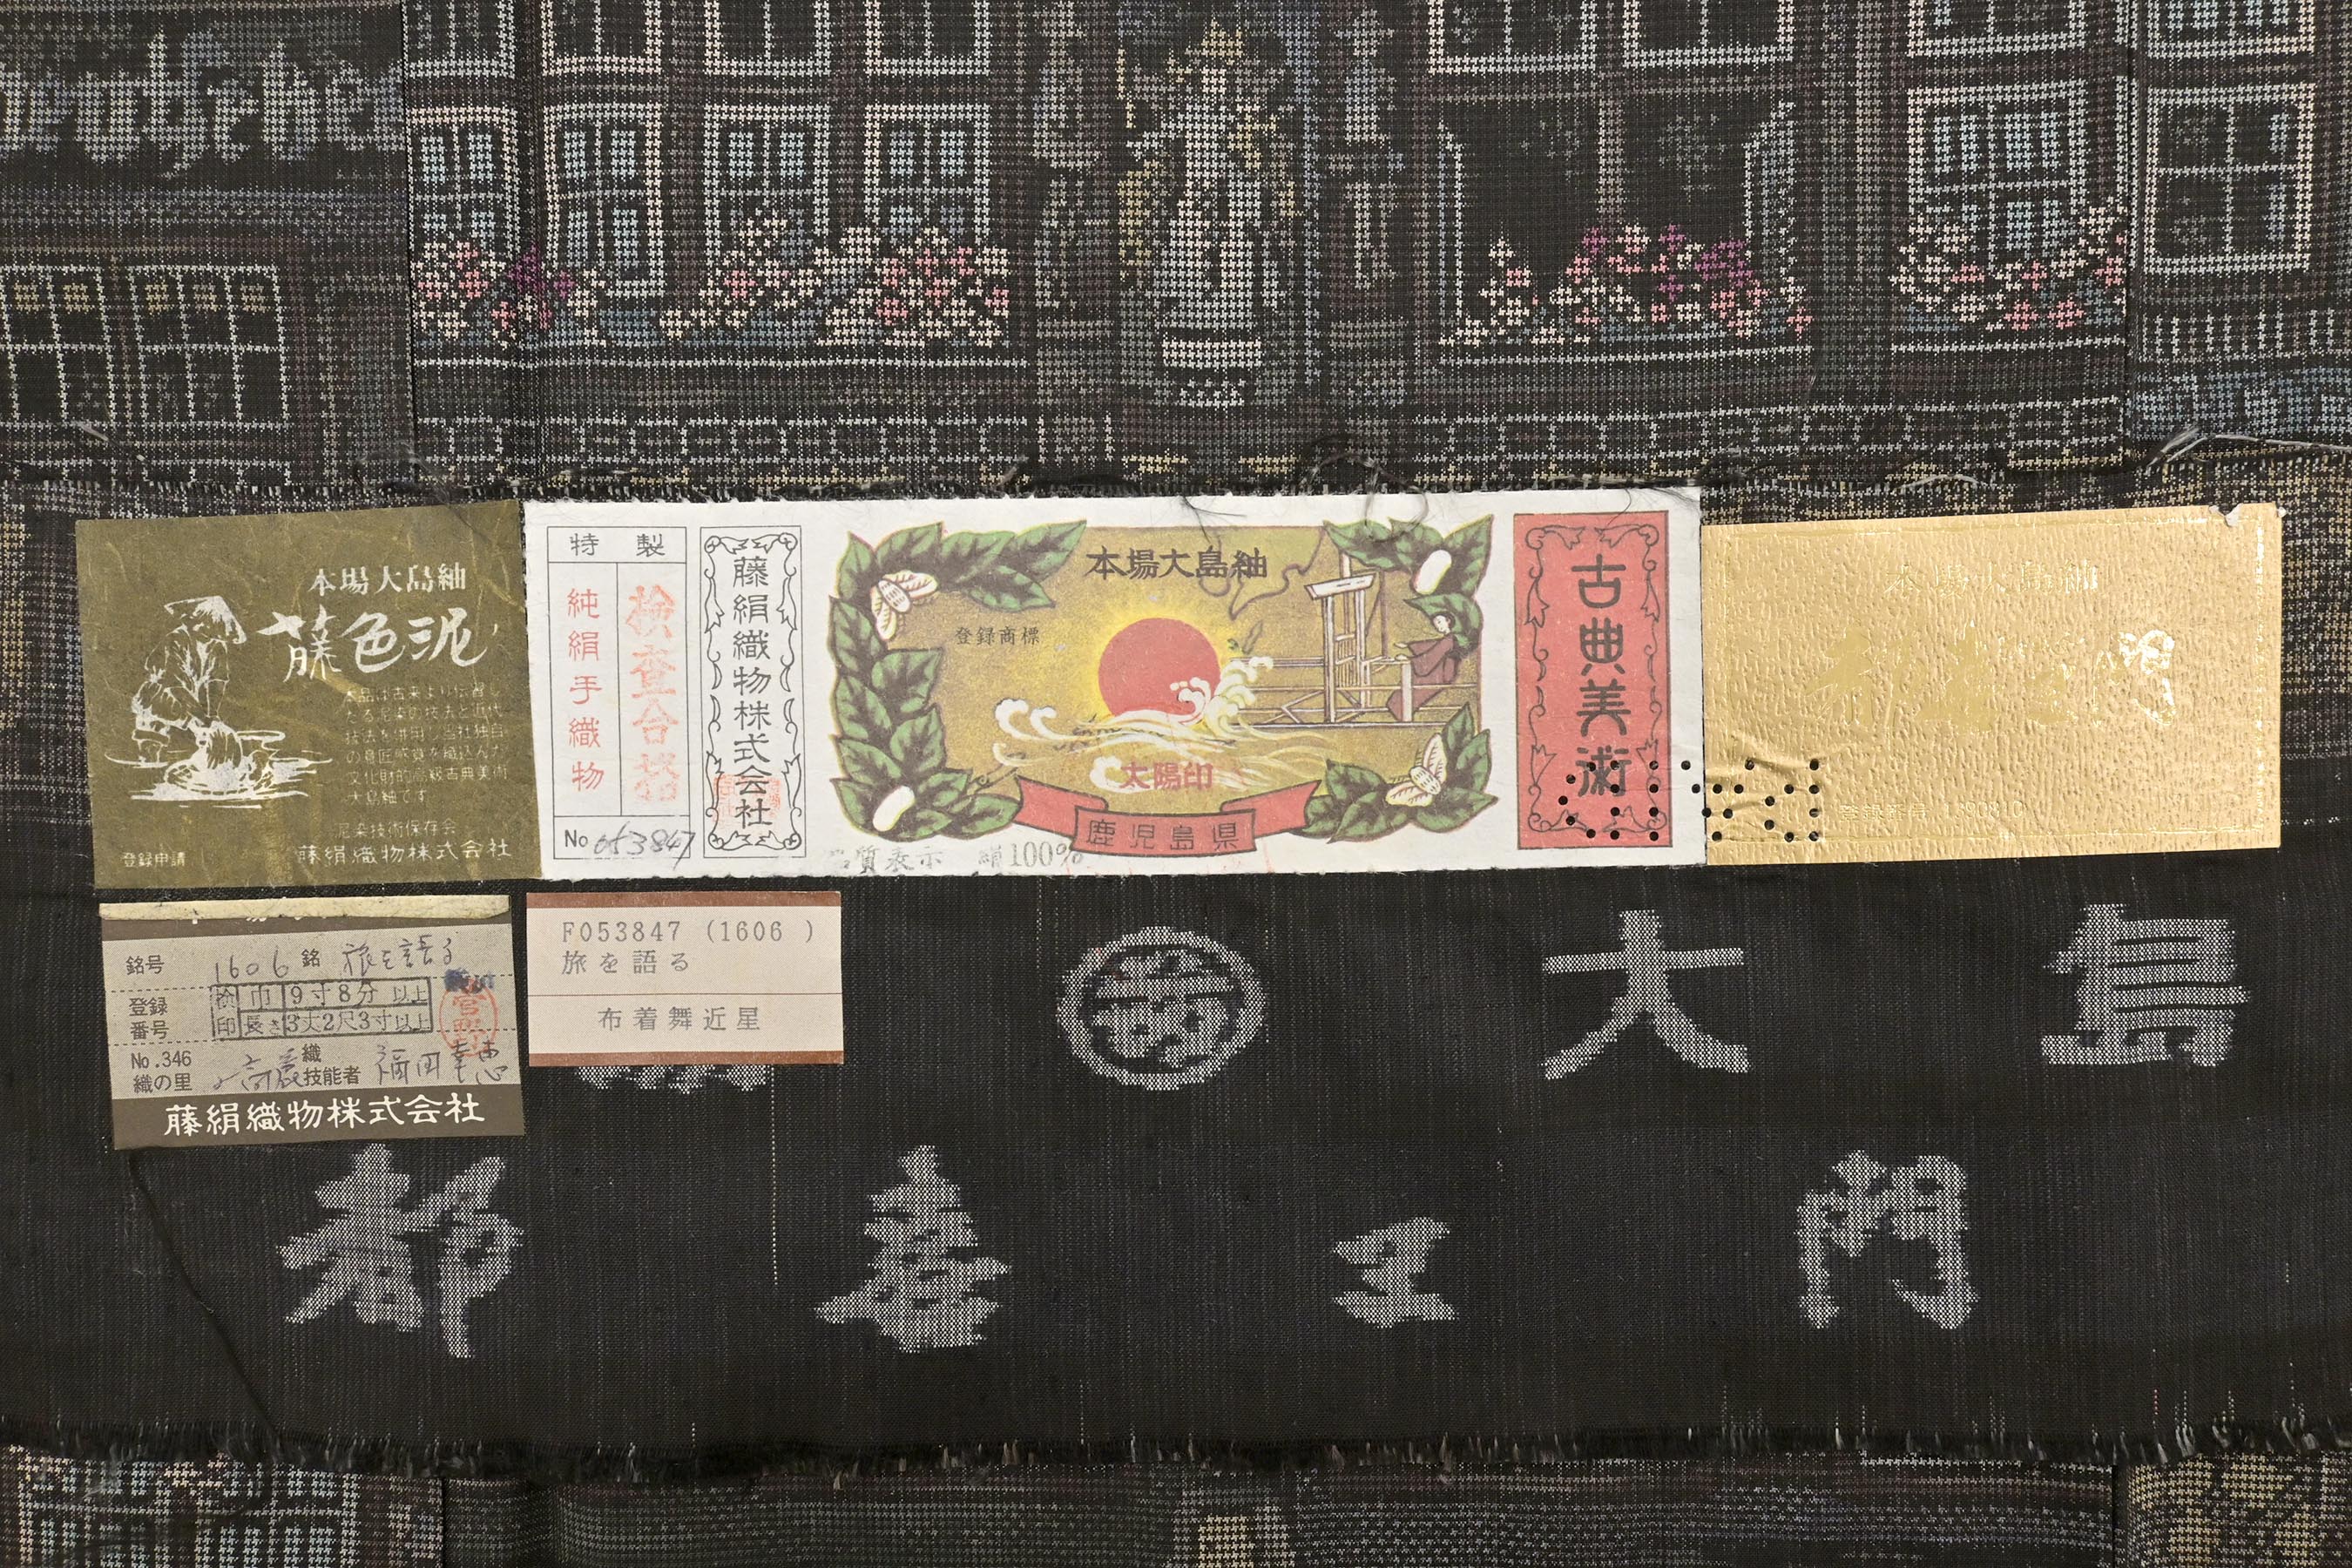 本場大島紬
藤色泥
本品は古来より伝習し
たる泥染の技法と近代
技法を併用し当社独自
の意匠感覚を織込んだ
文化財的高級古典美術
大島紬です
泥染技術保存会
登録申請
藤絹織物株式会社
特製
純絹手織物
検査合格
No 053847
藤絹織物株式会社
本場大島紬
登録商標
太陽印
鹿児島県
品質表示 絹100%
古典美術
本場大島紬
門
登録番号
銘号 1606 銘 旅を語る
登録番号
検印
巾 9寸8分 以上
長さ 3丈2尺3寸以上
No.346
織の里
織
技能者 福田幸恵
藤絹織物株式会社
F053847 (1606 )
旅を語る
布着舞近星
大島
都喜ヱ門